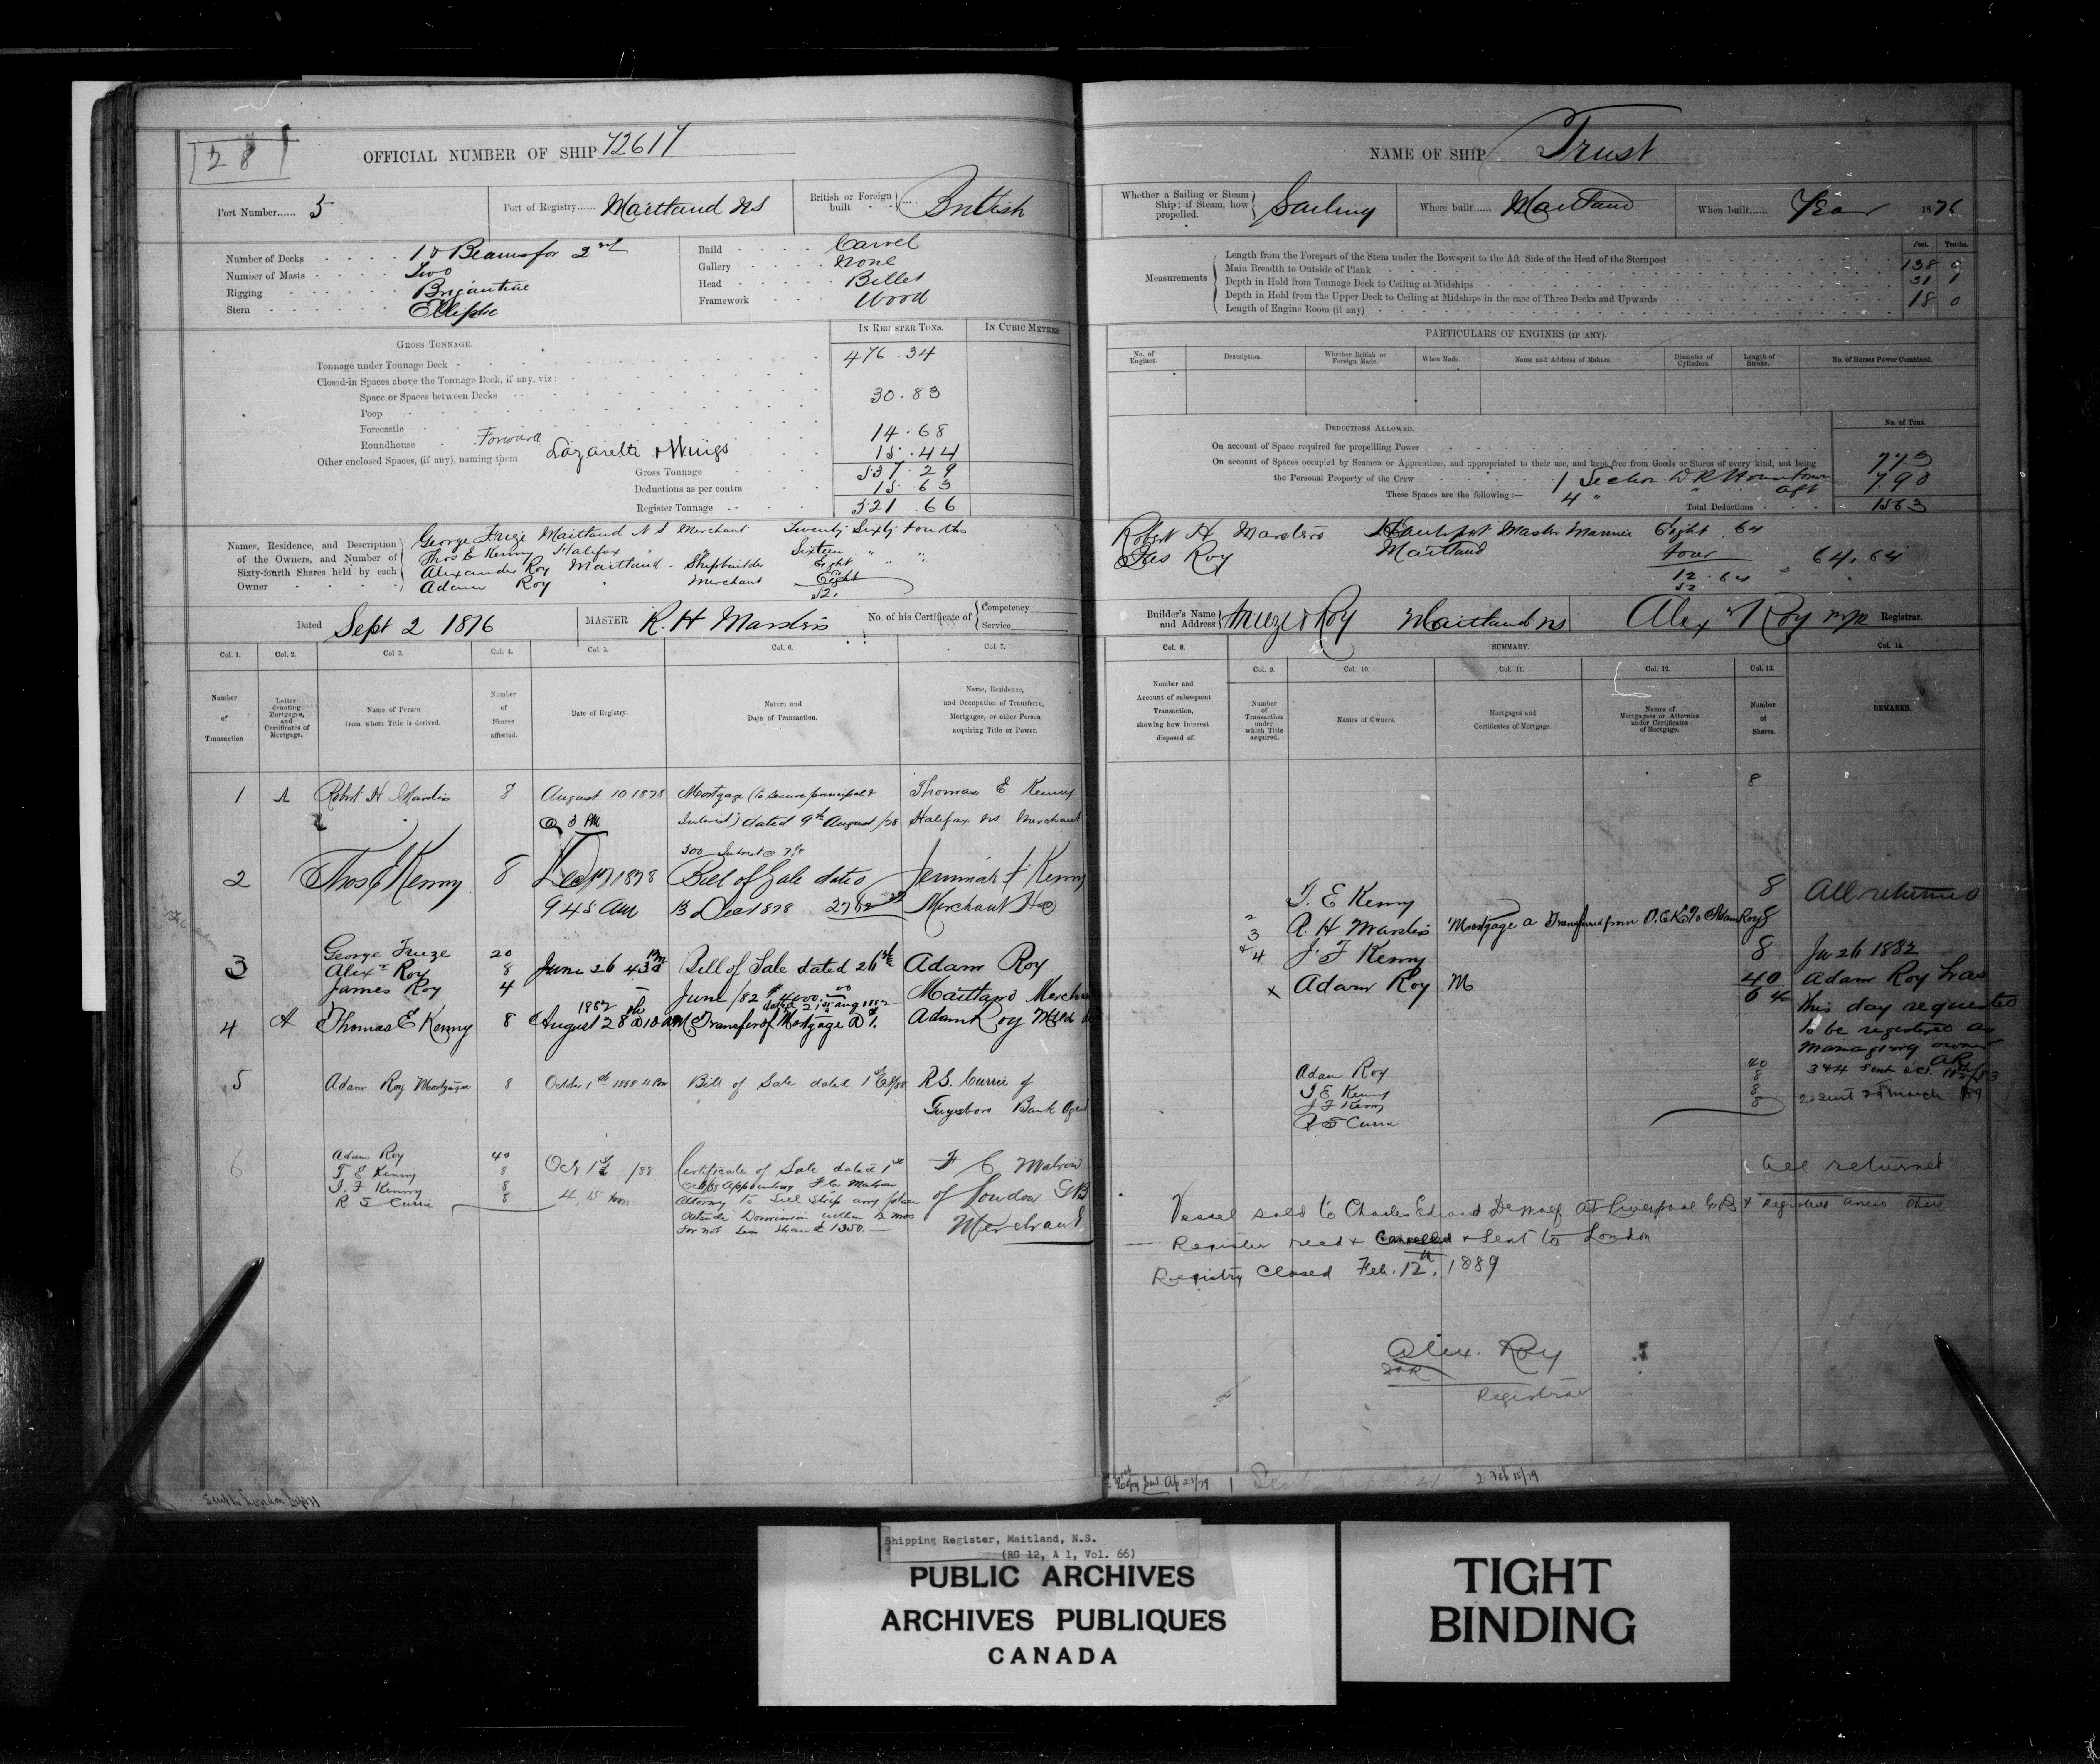 28
OFFICIAL NUMBER OF SHIP 72617
Port Number...... 5
Port of Registry...... Maitland NS
British or Foreign built British
Number of Decks 1 & Beams for 2nd
Number of Masts Two
Rigging Brigantine
Stern Elliptic
Build Carvel
Gallery None
Head Billet
Framework Wood
In Register Tons. In Cubic Metres
Gross Tonnage.
Tonnage under Tonnage Deck 476.34
Closed-in Spaces above the Tonnage Deck, if any, viz:
Space or Spaces between Decks 30.83
Poop
Forecastle
Roundhouse Forward 14.68
Other enclosed Spaces, (if any), naming them Lazarette & Wings 15.44
Gross Tonnage 537.29
Deductions as per contra 15.63
Register Tonnage 521.66
Names, Residence, and Description of the Owners, and Number of Sixty-fourth Shares held by each Owner
George Frieze Maitland N S Merchant Twenty Sixty fourths
Thos E Kenny Halifax " " Sixteen " "
Alexander Roy Maitland - Shipbuilder Eight " "
Adam Roy " Merchant Eight
52.
Dated Sept 2 1876
MASTER R. H Marsters
No. of his Certificate of Competency Service
Col. 1. Col. 2. Col. 3. Col. 4. Col. 5. Col. 6. Col. 7.
Number of Transaction
Letter denoting Mortgages, and Certificates of Mortgage.
Name of Person from whom Title is derived.
Number of Shares affected.
Date of Registry.
Nature and Date of Transaction.
Name, Residence, and Occupation of Transferee, Mortgagee, or other Person acquiring Title or Power.
1 A Robt H Marsters 8 August 10 1878 Mortgage (to secure principal & Thomas E Kenny
@ 3 PM Interest) dated 9th August /78 Halifax NS Merchant
300 Interest @ 7%
2 Thos E Kenny 8 Dec 17 1878 Bill of Sale dated Jeremiah F Kenny
9 45 AM 13 Dec 1878 Merchant
George Frieze 20
3 Alexr Roy 8 June 26 4 30 PM Bill of Sale dated 26th Adam Roy
James Roy 4 1882 June /82 $4000.00 Maitland Merchant
dated 21st Aug 1882
4 A Thomas E Kenny 8 August 28th @ 10 AM Transfer of Mortgage A Adam Roy
5 Adam Roy Mortgagee 8 October 1st 1888 Bill of Sale dated 1st R.S. Currie of
Guysboro Bank Agent
6 Adam Roy 40
T E Kenny 8
J. F Kenny 8
R S Currie 8
Oct 1st /88
4 15
Certificate of Sale dated 1st
Appointing F C. Mahon
Attorney to Sell Ship any place
Outside Dominion within 12 mos
for not less than £1350.
F C Mahon
of London GB
Merchant
NAME OF SHIP Trust
Whether a Sailing or Steam Ship; if Steam, how propelled. Sailing
Where built...... Maitland
When built...... Year 1876
Feet. Tenths.
Measurements
Length from the Forepart of the Stem under the Bowsprit to the Aft Side of the Head of the Sternpost 138 0
Main Breadth to Outside of Plank 31 1
Depth in Hold from Tonnage Deck to Ceiling at Midships 18 0
Depth in Hold from the Upper Deck to Ceiling at Midships in the case of Three Decks and Upwards
Length of Engine Room (if any)
PARTICULARS OF ENGINES (IF ANY).
No. of Engines. Description. Whether British or Foreign Made. When Made. Name and Address of Makers. Diameter of Cylinders. Length of Stroke. No. of Horses Power Combined.
Deductions Allowed. No. of Tons.
On account of Space required for propelling Power
On account of Spaces occupied by Seamen or Apprentices, and appropriated to their use, and kept free from Goods or Stores of every kind, not being
the Personal Property of the Crew 7.73
These Spaces are the following :— 1 Section D K House forwd 7.90
4 " " aft
Total Deductions 15.63
Robert H Marsters Hantsport Master Mariner Eight 64
Jas Roy Maitland four
12.64 = 64.64
52
Builder's Name and Address Frieze & Roy Maitland NS
Alex Roy Registrar.
Col. 8. SUMMARY. Col. 14.
Col. 9. Col. 10. Col. 11. Col. 12. Col. 13.
Number and Account of subsequent Transaction, showing how Interest disposed of.
Number of Transaction under which Title acquired.
Names of Owners.
Mortgages and Certificates of Mortgage.
Names of Mortgagees or Attornies under Certificates of Mortgage.
Number of Shares.
REMARKS.
8
T. E Kenny 8 All returned
3 R. H Marsters Mortgage A Transferred from T. E K to Adam Roy 8
4 J. F Kenny 8 Ju 26 1882
x Adam Roy M 40 Adam Roy has
64 this day requested
to be registered as
Managing owner
Adam Roy 40
T. E Kenny 8
J F Kenny 8
R S Currie 8
3 & 4 Sent
All returned
Vessel sold to Charles Edward at Liverpool G.B. & Registered anew there
Register recd & Cancelled & Sent to London
Registry Closed Feb. 12th, 1889
Alex. Roy
Registrar
Sent
2 Feb 18/79
Shipping Register, Maitland, N.S.
(RG 12, A 1, Vol. 66)
PUBLIC ARCHIVES
ARCHIVES PUBLIQUES
CANADA
TIGHT
BINDING